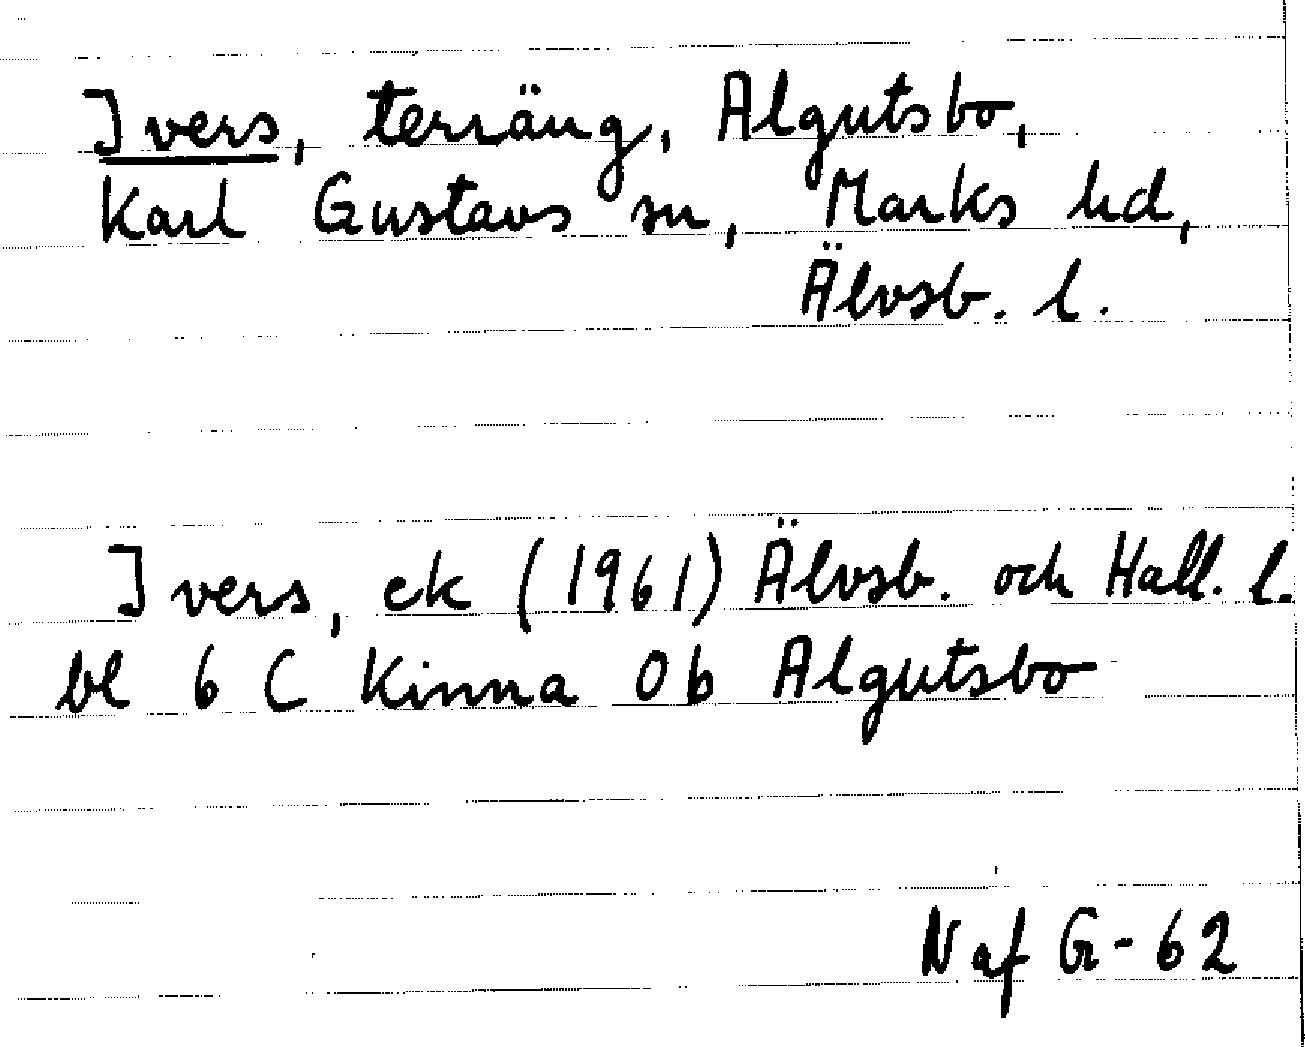 Ivers, terräng, Algutsbo,
Karl Gustavs sn, Marks hd,
Älvsb. l.
Ivers, ek (1961) Älvsb. och Hall. l.
bl 6 C Kinna 0b Algutsbo
N af G-62